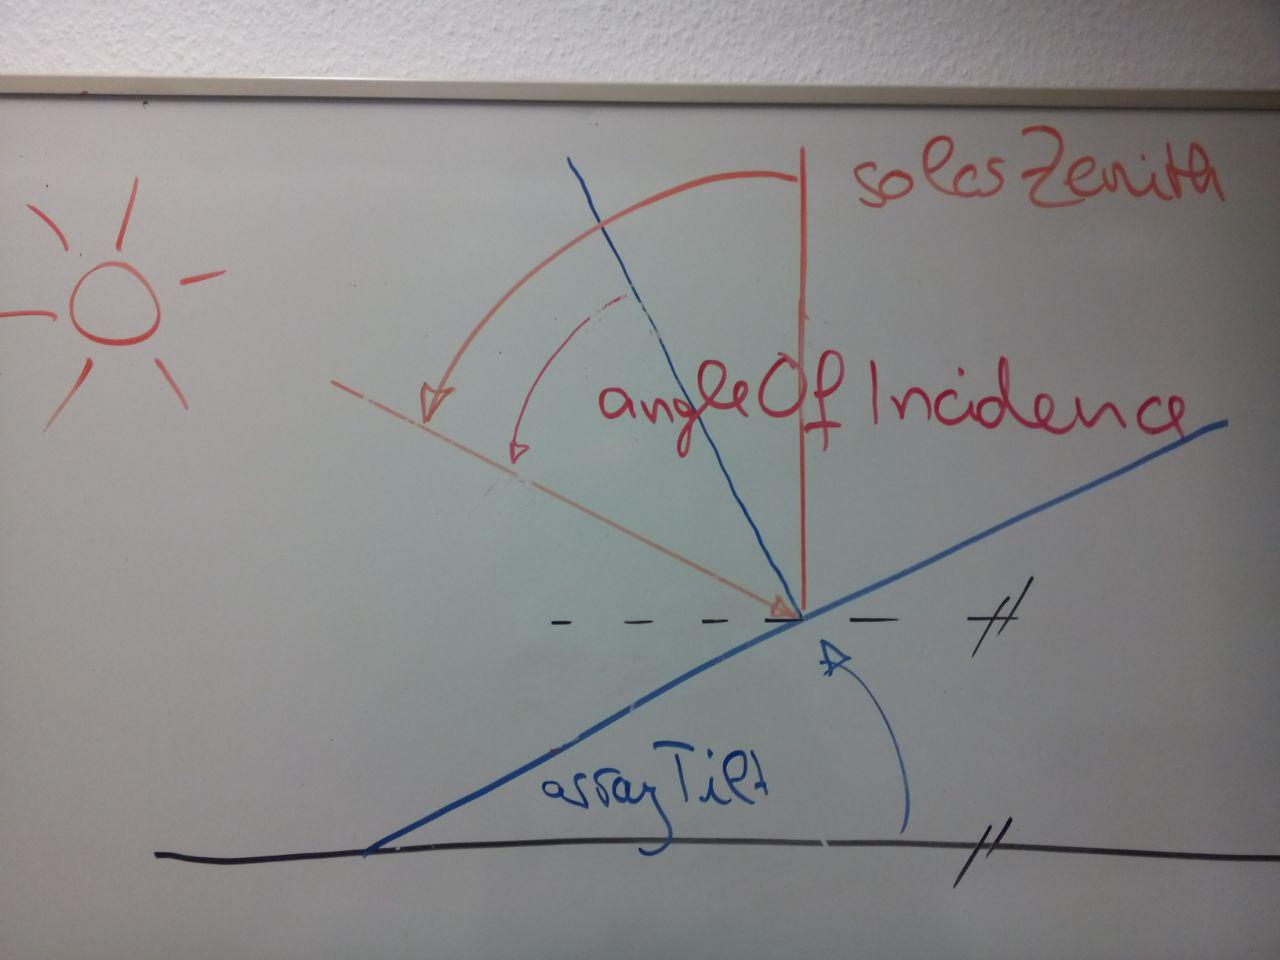 solarZenith
angleOfIncidence
arrayTilt